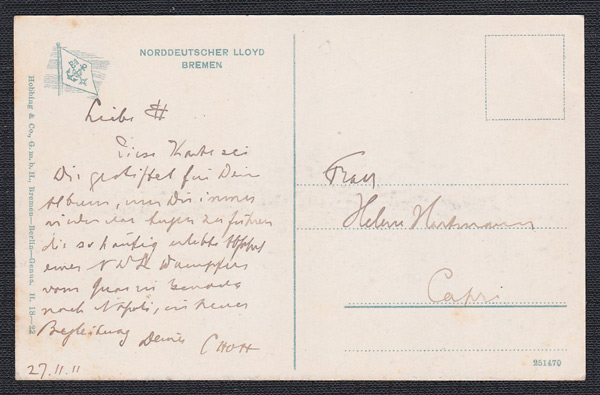 NORDDEUTSCHER LLOYD
BREMEN
Liebe H
Diese Karte sei
Dir gestiftet für Dein
Album, um Dir immer
wieder vor Augen zu führen
die so häufig erlebte Abfahrt
eines N D L Dampfers
vom Quai in Genova
nach Napoli, in treuer
Begleitung Deines
27.11.11
Frau
Helene Hartmann
Capri
251470
Hobbing & Co., G.m.b.H., Bremen—Berlin—Genua. H. 18—22